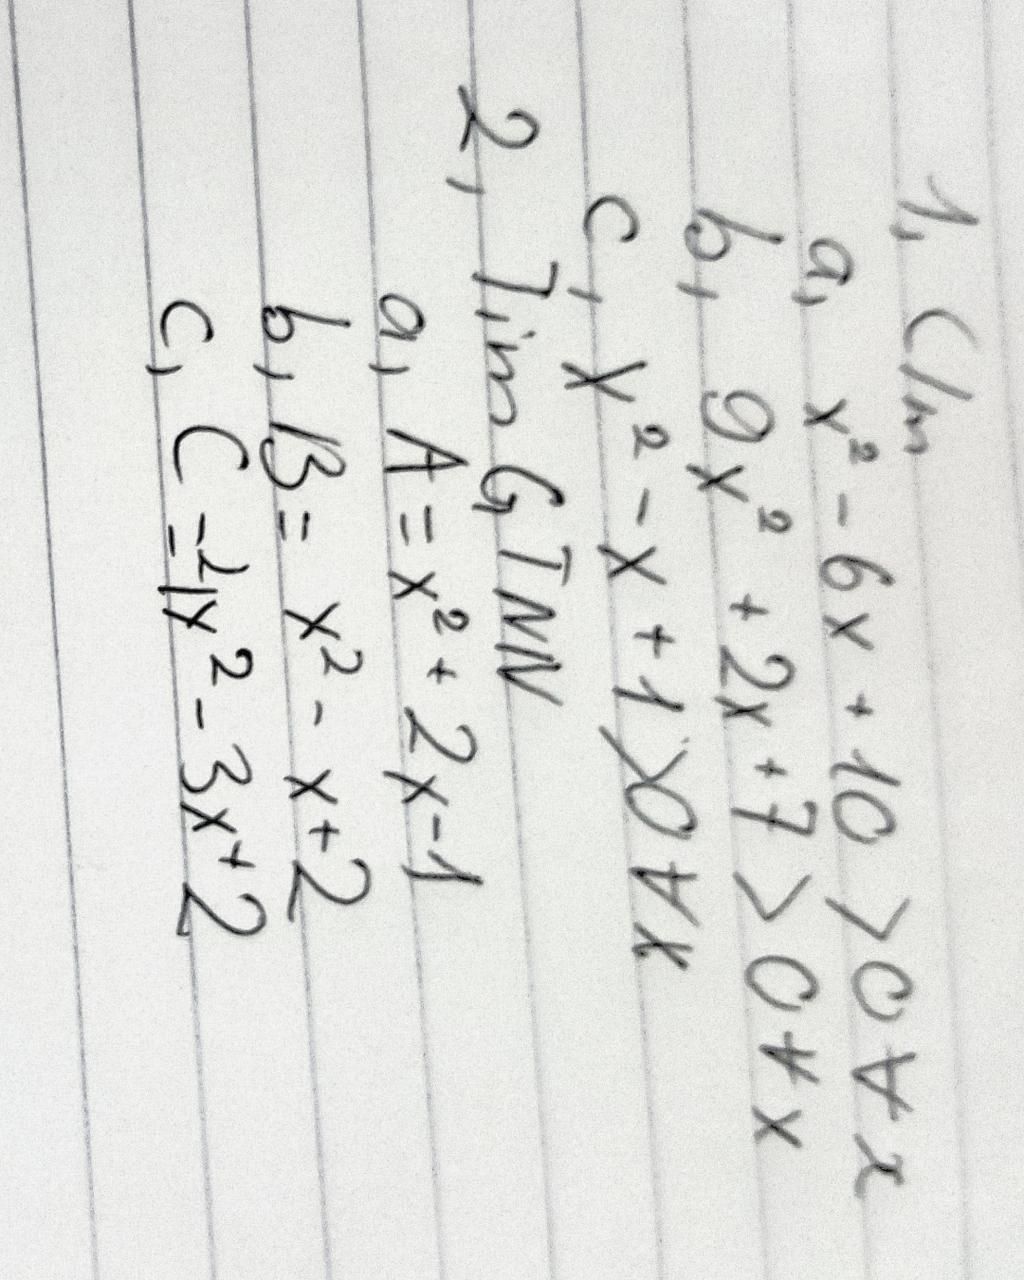 1, C/m
a, x² - 6x + 10 > 0 ∀ x
b, 9x² + 2x + 7 > 0 ∀ x
c, x² - x + 1 > 0 ∀ x
2, Tìm GTNN
a, A = x² + 2x - 1
b, B = x² - x + 2
c, C = 4x² - 3x + 2